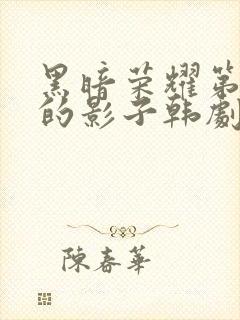 黑暗荣耀第
的影子韩劇
陳春華